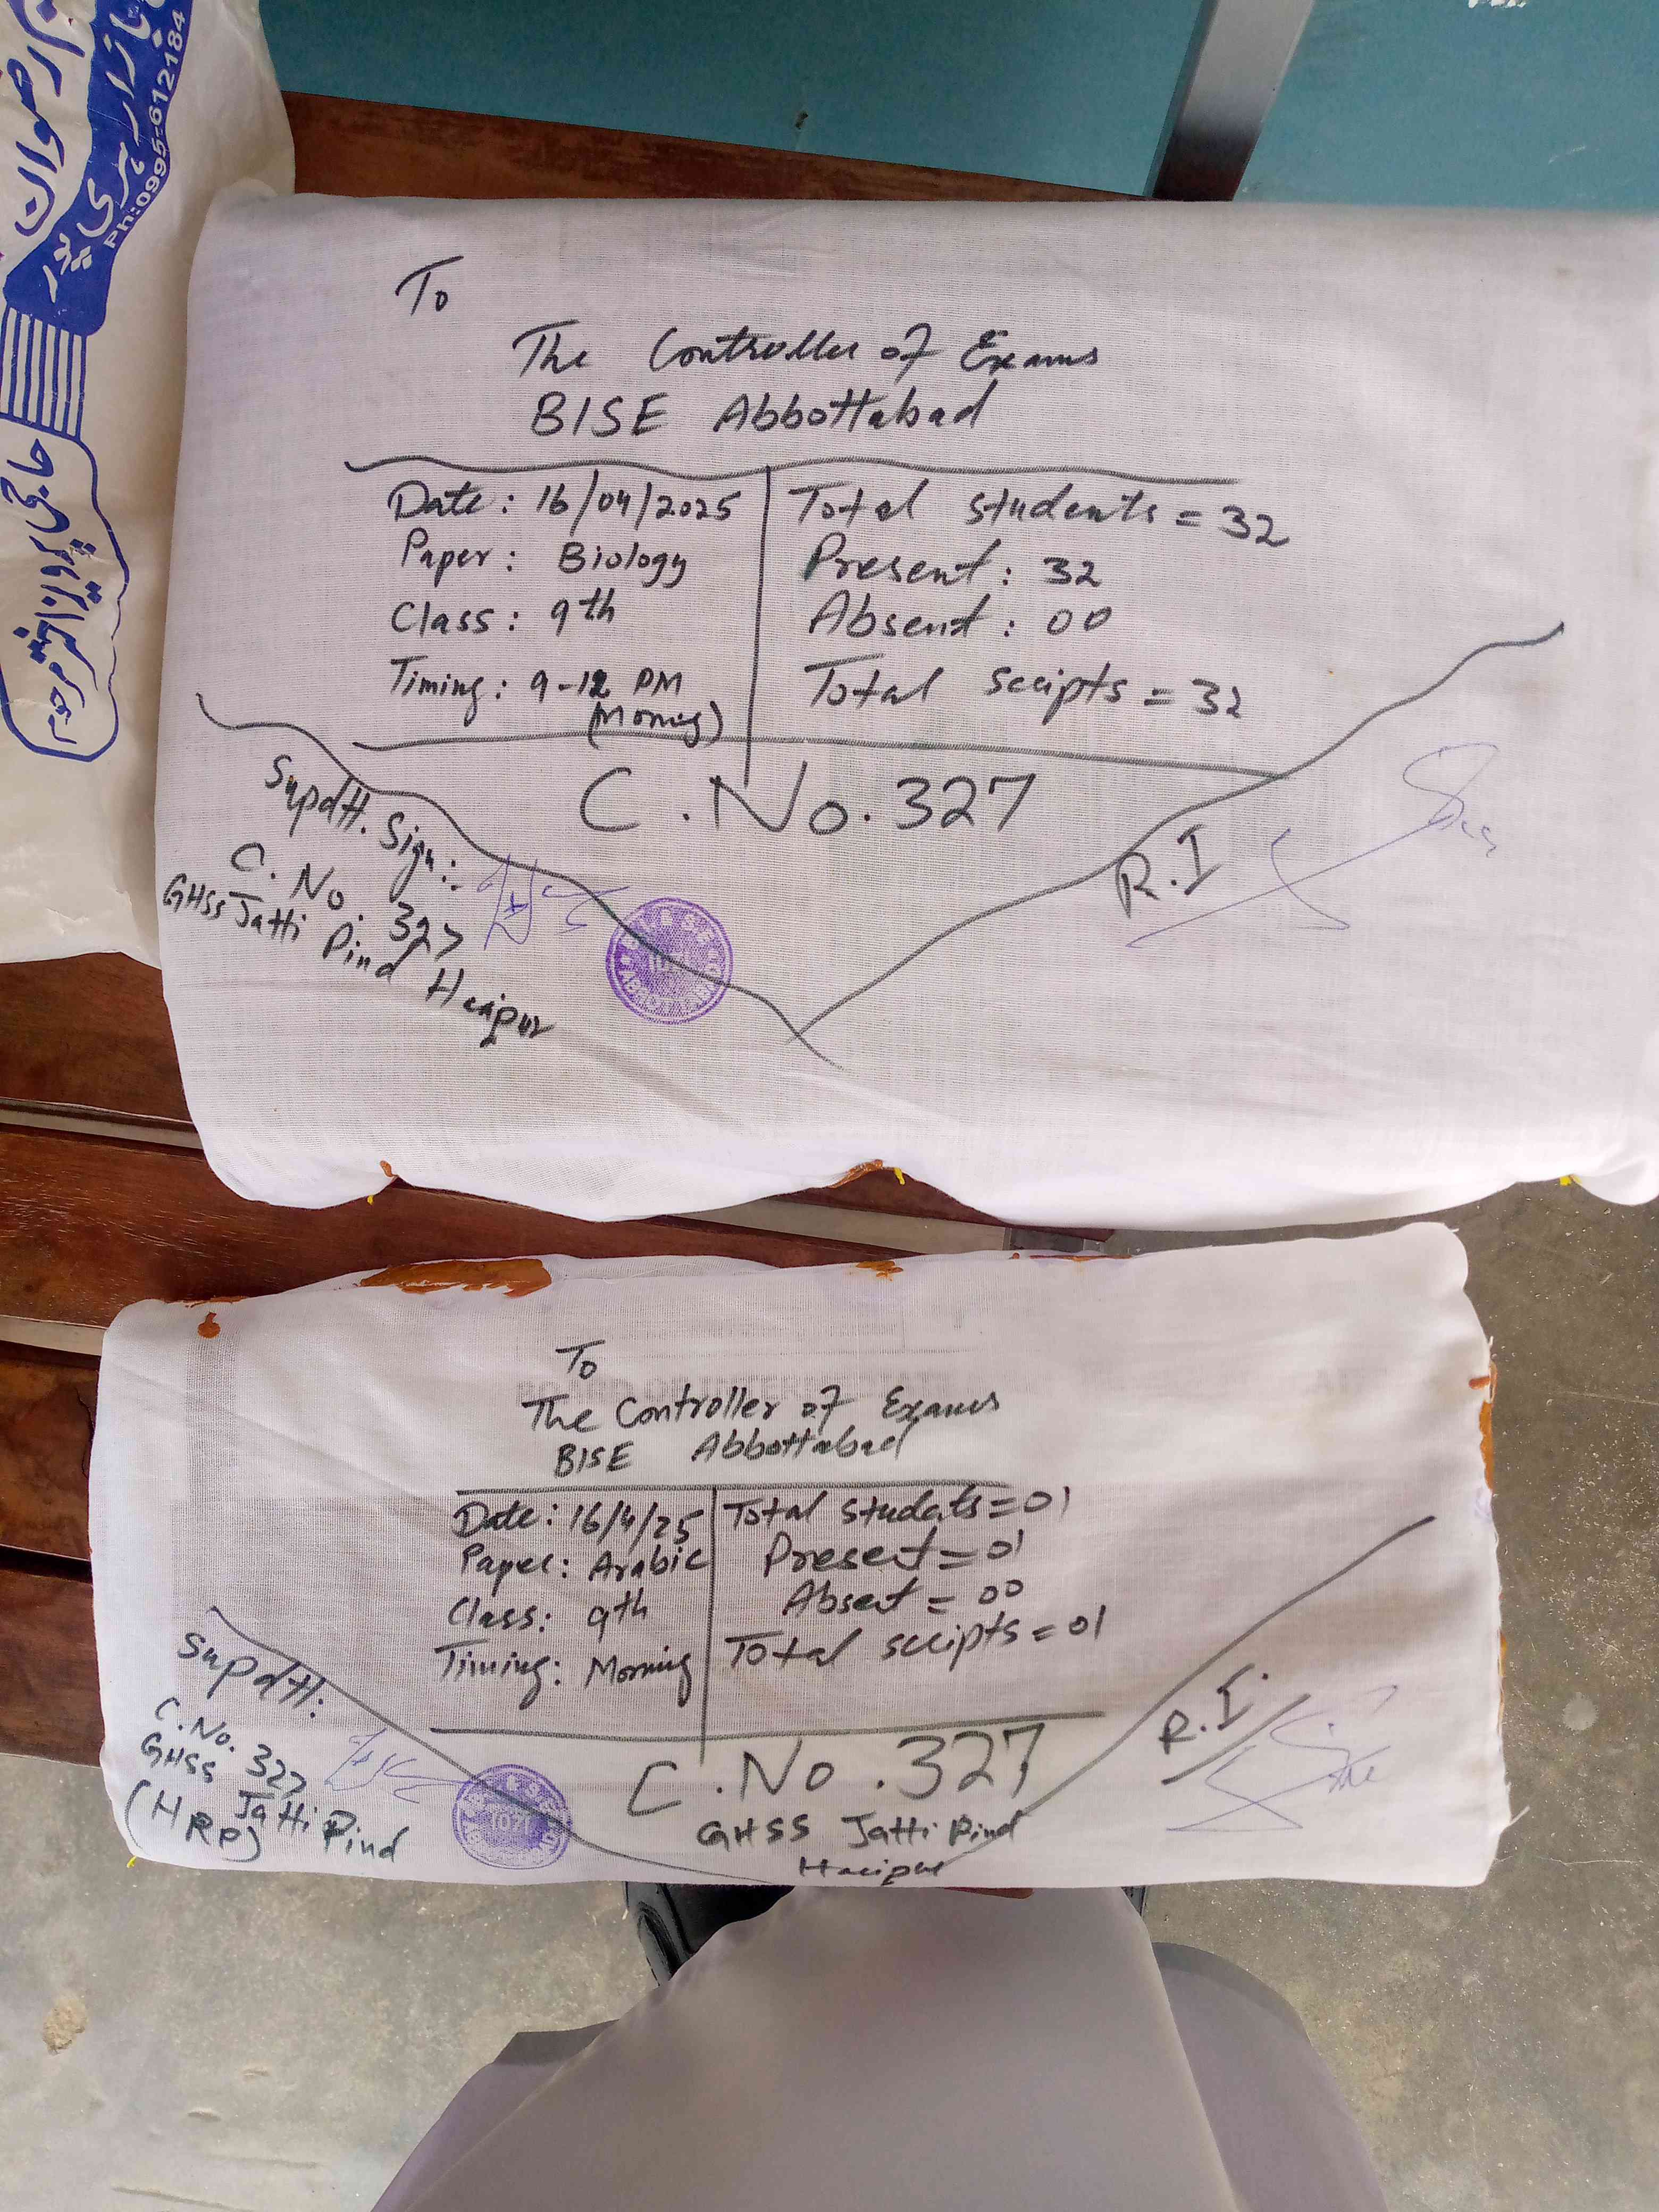 رضوان
بازار ہری پور
Ph:0995-612184
To
The Controller of Exams
BISE Abbottabad
Date: 16/04/2025
Paper: Biology
Class: 9th
Timing: 9-12 PM
(Morning)
Total students = 32
Present: 32
Absent: 00
Total scripts = 32
C.No.327
Supdtt. Sign:-
C. No. 327
GHSS Jatti Pind Haripur
R.I
To
The Controller of Exams
BISE Abbottabad
Date: 16/4/25
Paper: Arabic
Class: 9th
Timing: Morning
Total students=01
Present=01
Absent=00
Total scripts=01
Supdtt:
C.No. 327
GHSS Jatti Pind
(HRP)
C.No.327
GHSS Jatti Pind
Haripur
R.I.